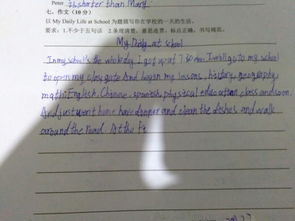 Peter is shorter than Mary.
七、作文（10分）
以 My Daily Life at School 为题描写你在学校的一天的生活。
要求：1.不少于五句话 2.条理清楚，意思连贯，标点正确，书写规范。
My Daily at school
In my school's the whole day. I got up at I will go to my school
to open my class And began my lessons, history, geography
math, English, Chinese, spanish, physical education class and soon.
And just went home have danper and clean the dishes and walk
around the road. At the